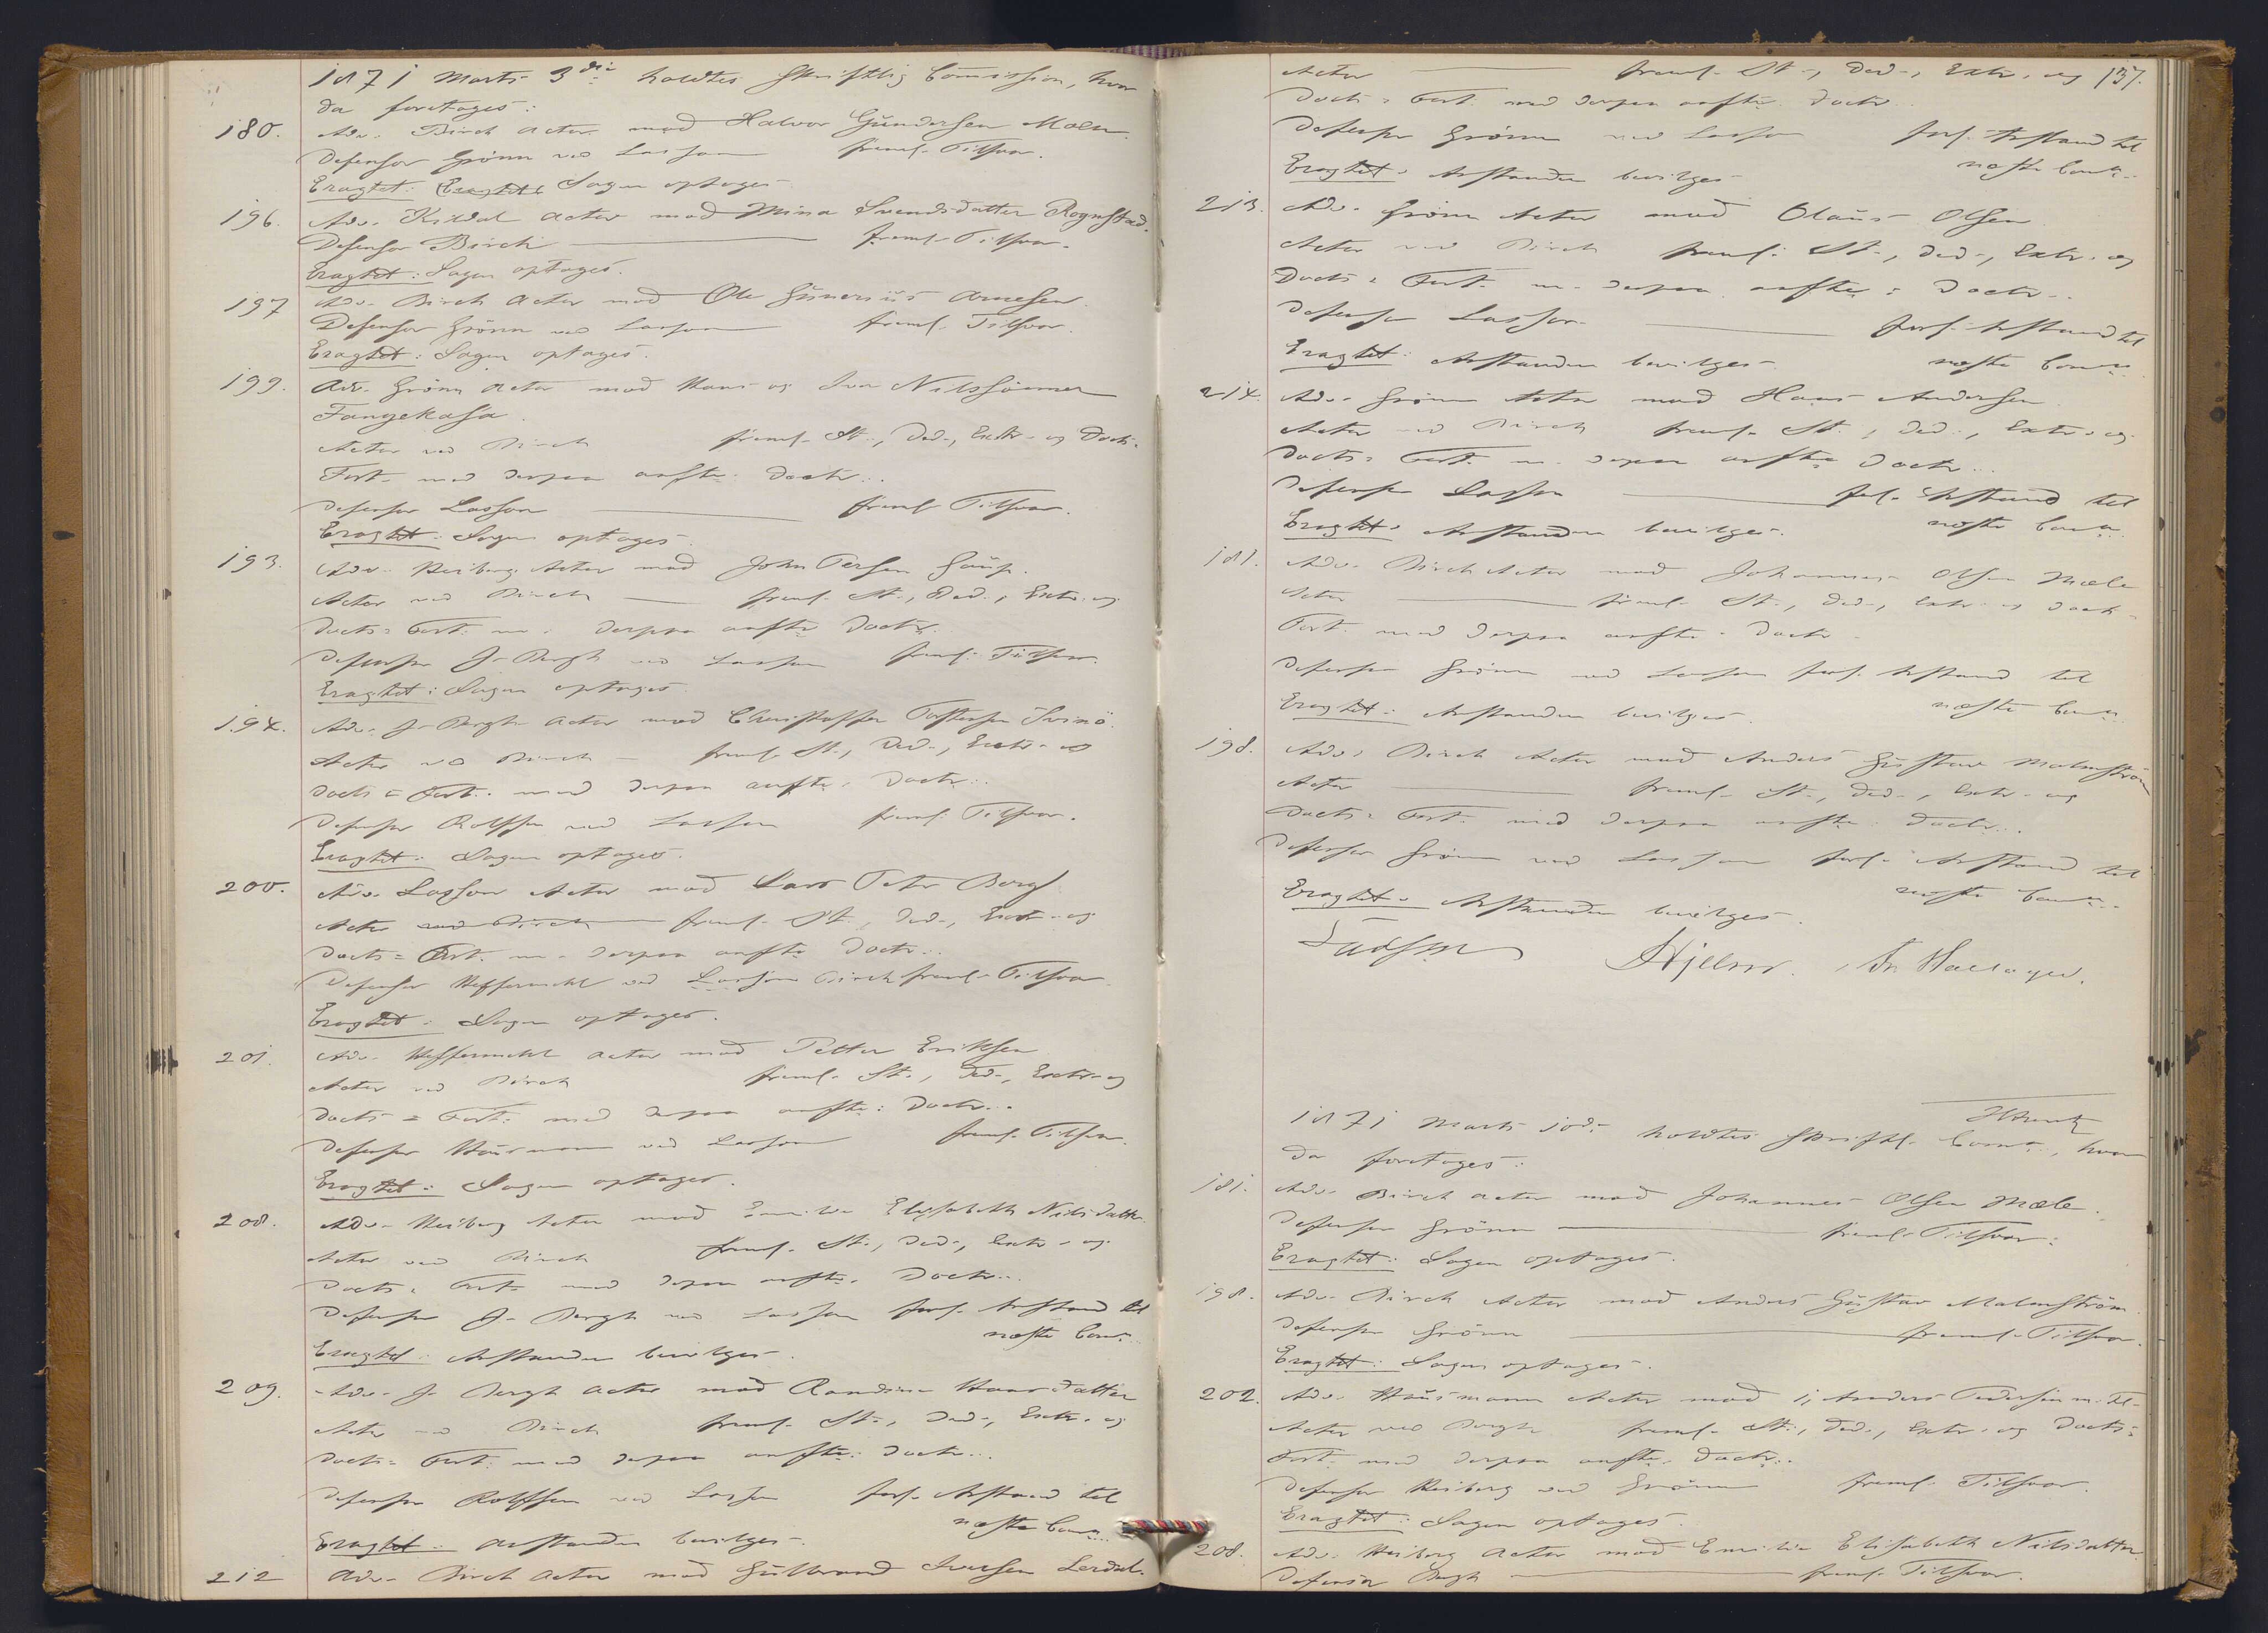 1871 Marts 3die holdtes Skriftlig Commission, hvor
da foretoges:
180. Adv. Birch Actor mod Halvor Gundersen Moen.
Defensor Grönn ved Lasson freml. Tilsvar.
Eragtet: Sagen optages
196. Adv. Kildal Actor mod Mina Svendsdatter Rognstad.
Defensor Birch freml. Tilsvar.
Eragtet: Sagen optages.
197 Adv. Birch Actor mod Ole Gunerius Arnesen.
Defensor Grönn ved Lasson freml. Tilsvar.
Eragtet: Sagen optages.
199. Adv. Grönn Actor mod Hans og Iver Nilssönner
Fangekasa.
Actor ved Birch freml. St., Ded., Extr. og Docts.
Fort. med derpaa anfte. Doctr.
Defensor Lasson freml. Tilsvar.
Eragtet: Sagen optages.
193. Adv. Heiberg Actor mod John Persen Gaup.
Actor ved Birch freml. St., Ded., Extr. og
Docts: Fort. m. derpaa anfte Doctr.
Defensor J. Bergh ved Lasson freml. Tilsvar.
Eragtet: Sagen optages.
194. Adv. J. Bergh Actor mod Christoffer Torstensen Svinö.
Actor ved Birch freml. St., Ded., Extr. og
Docts: Fort. med derpaa anfte. Doctr.
Defensor Rolfsen ved Lasson freml. Tilsvar.
Eragtet: Sagen optages.
200. Adv. Lasson Actor mod Lars Peter Borg.
Actor ved Birch freml. St., Ded., Extr. og
Docts: Fort. m. derpaa anfte Doctr.
Defensor Heffermehl ved Lasson Birch freml. Tilsvar
Eragtet: Sagen optages.
201. Adv. Heffermehl Actor mod Petter Eriksen
Actor ved Birch freml. St., Ded., Extr. og
Docts: Fort. med derpaa anfte: Doctr.
Defensor Husmann ved Lasson freml. Tilsvar.
Eragtet: Sagen optages.
208. Adv. Heiberg Actor mod Emilie Elisabeth Nilsdatter.
Actor ved Birch freml. St., Ded., Extr. og
Docts: Fort. med derpaa anfte. Doctr.
Defensor J. Bergh ved Lasson forl. Anstand til
næste Comn.
Eragtet: Anstanden bevilges.
209. Adv. J. Bergh Actor mod Randine Hansdatter
Actor ved Birch freml. St., Ded., Extr. og
Docts: Fort. med derpaa anfte: Doctr.
Defensor Rolfsen ved Lasson forl. Anstand til
næste Comn.
Eragtet: Anstanden bevilges.
212 Adv. Birch Actor mod Gulbrand Iversen Lerdal.
137.
Actor freml. St., Ded., Extr. og
Docts: Fort. med derpaa anfte. Doctr.
Defensor Grönn ved Lasson forl. Anstand til
næste Comn.
Eragtet: Anstanden bevilges
213. Adv. Grönn Actor mod Olaus Olsen
Actor ved Birch freml. St., Ded., Extr. og
Docts: Fort. m. derpaa anfte: Doctr.
Defensor Lasson forl. Anstand til
næste Comn.
Eragtet: Anstanden bevilges
214. Adv. Grönn Actor mod Hans Andersen
Actor ved Birch freml. St., Ded., Extr. og
Docts: Fort. m. derpaa anfte Doctr.
Defensor Lasson forl. Anstand til
næste Comn.
Eragtet: Anstanden bevilges.
181. Adv. Birch Actor mod Johannes Olsen Mæle
Actor freml. St., Ded., Extr. og Docts.
Fort. med derpaa anfte. Doctr.
Defensor Grönn ved Lasson forl. Anstand til
næste Comn.
Eragtet: Anstanden bevilges.
198. Adv. Birch Actor mod Anders Gustav Malmström
Actor freml. St., Ded., Extr. og
Docts: Fort. med derpaa anfte. Doctr.
Defensor Grönn ved Lasson forl. Anstand til
næste Comn.
Eragtet: Anstanden bevilges.
Hjelm. Fr. Hallager.
1871 Marts 10de holdtes Skriftl. Comn., hvor
da foretoges:
181. Adv. Birch Actor mod Johannes Olsen Mæle.
Defensor Grönn freml. Tilsvar.
Eragtet: Sagen optages.
198. Adv. Birch Actor mod Anders Gustav Malmström.
Defensor Grönn freml. Tilsvar.
Eragtet: Sagen optages.
202. Adv. Husmann Actor mod 1, Anders Pedersen m. Fl.
Actor ved Bergh freml. St., Ded., Extr. og Docts:
Fort. med derpaa anfte. Doctr.
Defensor Heiberg ved Grönn freml. Tilsvar.
Eragtet: Sagen optages.
208. Adv. Heiberg Actor mod Emilie Elisabeth Nilsdatter.
Defensor Bergh freml. Tilsvar.